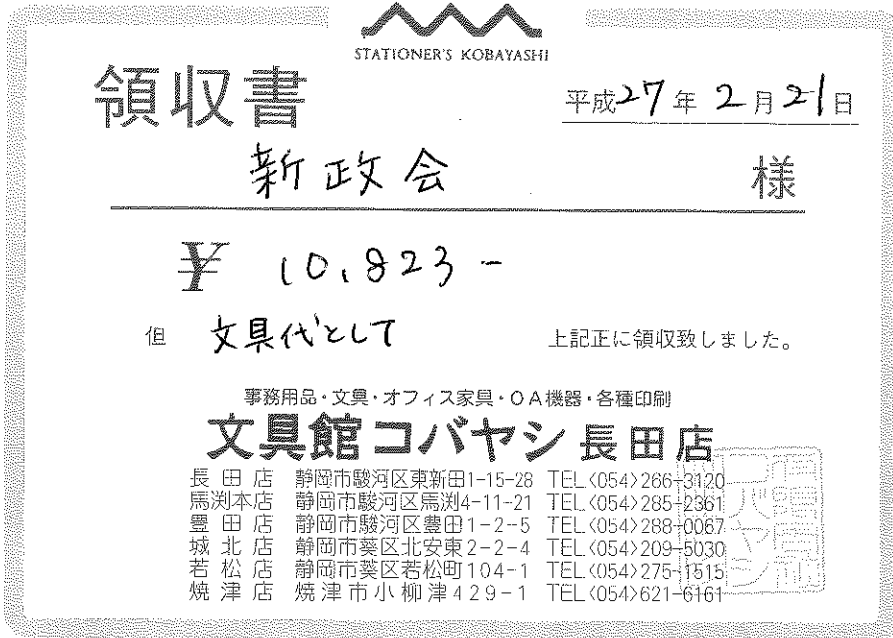 STATIONER'S KOBAYASHI
領収書
平成27年2月21日
新政会 様
¥ 10,823-
但 文具代として 上記正に領収致しました。
事務用品・文具・オフィス家具・OA機器・各種印刷
文具館コバヤシ 長田店
長田店 静岡市駿河区東新田1-15-28 TEL〈054〉266-3120
馬渕本店 静岡市駿河区馬渕4-11-21 TEL〈054〉285-2361
豊田店 静岡市駿河区豊田1-2-5 TEL〈054〉288-0067
城北店 静岡市葵区北安東2-2-4 TEL〈054〉209-5030
若松店 静岡市葵区若松町104-1 TEL〈054〉275-1515
焼津店 焼津市小柳津429-1 TEL〈054〉621-6161